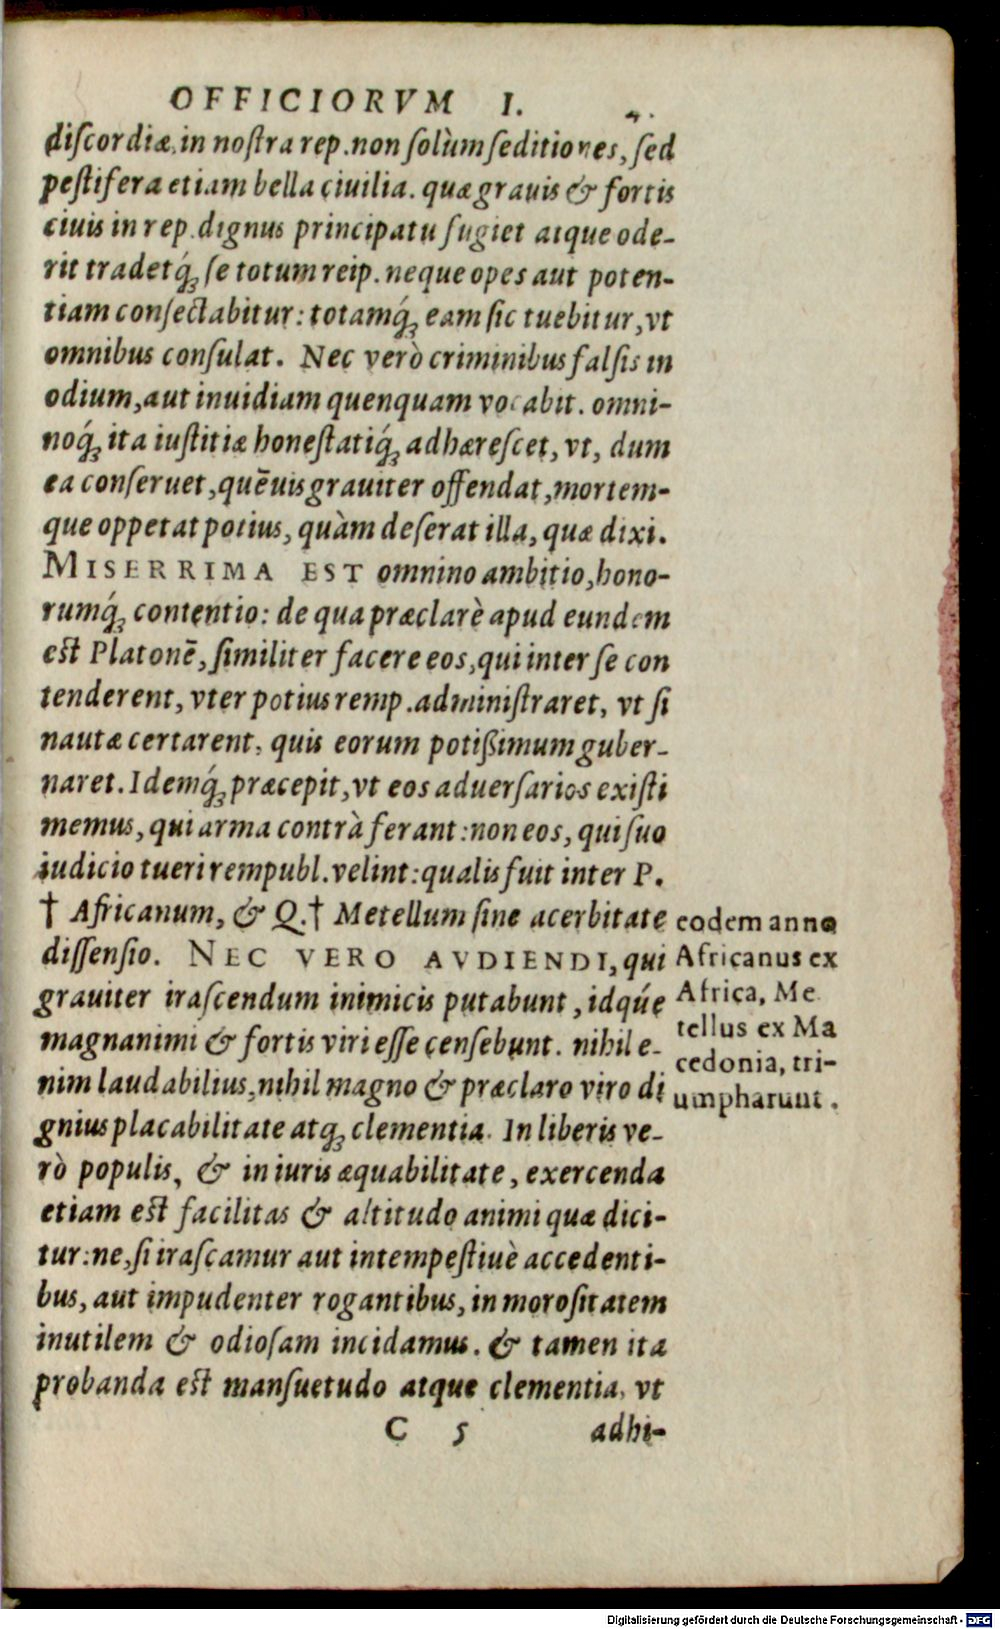 OFFICIORVM I.
discordiæ, in nostra rep. non solùm seditiones, sed
pestifera etiam bella ciuilia. quæ grauis & fortis
ciuis in rep. dignus principatu fugiet atque ode-
rit tradetq́; se totum reip. neque opes aut poten-
tiam consectabitur: totamq́; eam sic tuebitur, vt
omnibus consulat. Nec verò criminibus falsis in
odium, aut inuidiam quenquam vocabit. omni-
noq́; ita iustitiæ honestatiq́; adhærescet, vt, dum
ea conseruet, quẽuis grauiter offendat, mortem-
que oppetat potius, quàm deserat illa, quæ dixi.
MISERRIMA EST omnino ambitio, hono-
rumq́; contentio: de qua præclarè apud eundem
est Platonẽ, similiter facere eos, qui inter se con
tenderent, vter potius remp. administraret, vt si
nautæ certarent, quis eorum potißimum guber-
naret. Idemq́; præcepit, vt eos aduersarios existi
memus, qui arma contrà ferant: non eos, qui suo
iudicio tueri rempubl. velint: qualis fuit inter P.
† Africanum, & Q. † Metellum sine acerbitate
dissensio. NEC VERO AVDIENDI, qui
grauiter irascendum inimicis putabunt, idq́ue
magnanimi & fortis viri esse censebunt. nihil e-
nim laudabilius, nihil magno & præclaro viro di
gnius placabilitate atq; clementia. In liberis ve-
rò populis, & in iuris æquabilitate, exercenda
etiam est facilitas & altitudo animi quæ dici-
tur: ne, si irascamur aut intempestiuè accedenti-
bus, aut impudenter rogantibus, in morositatem
inutilem & odiosam incidamus. & tamen ita
probanda est mansuetudo atque clementia, vt
C 5 adhi-
eodem anno
Africanus ex
Africa, Me
tellus ex Ma
cedonia, tri-
umpharunt.
Digitalisierung gefördert durch die Deutsche Forschungsgemeinschaft - DFG